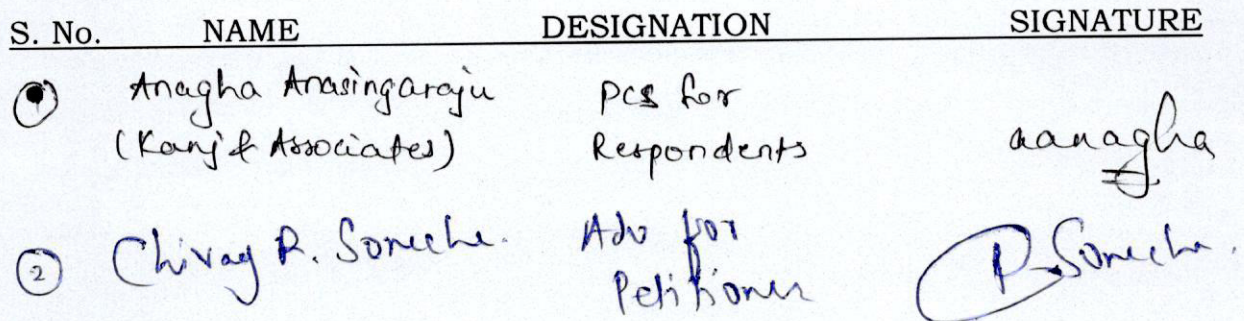 S. No. NAME DESIGNATION SIGNATURE
① Anagha Anasingaraju PCS for
(Kanj & Associates) Respondents aanagha
② Chirag R. Soneche. Adv for
Petitioner R. Soneche.